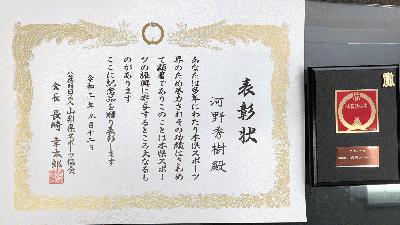 表彰状
河野秀樹殿
あなたは多年にわたり本県スポーツ
界のため尽力されその功績はきわめ
て顕著でありこのことは本県スポー
ツの振興に寄与するところ大なるも
のがあります
ここに記念品を贈り表彰します
令和二年九月十二日
公益財団法人山梨県スポーツ協会
会長 長崎幸太郎